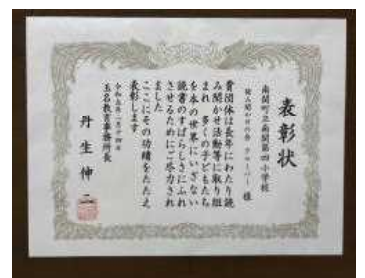 表彰状
南関町立南関第四小学校
読み聞かせの会 クローバー 様
貴団体は長年にわたり読
み聞かせ活動等に取り組
まれ 多くの子どもたち
を本の世界にいざない
読書のすばらしさにふれ
させるためにご尽力され
ました
ここにその功績をたたえ
表彰します
令和五年一月十四日
玉名教育事務所長
丹生伸二